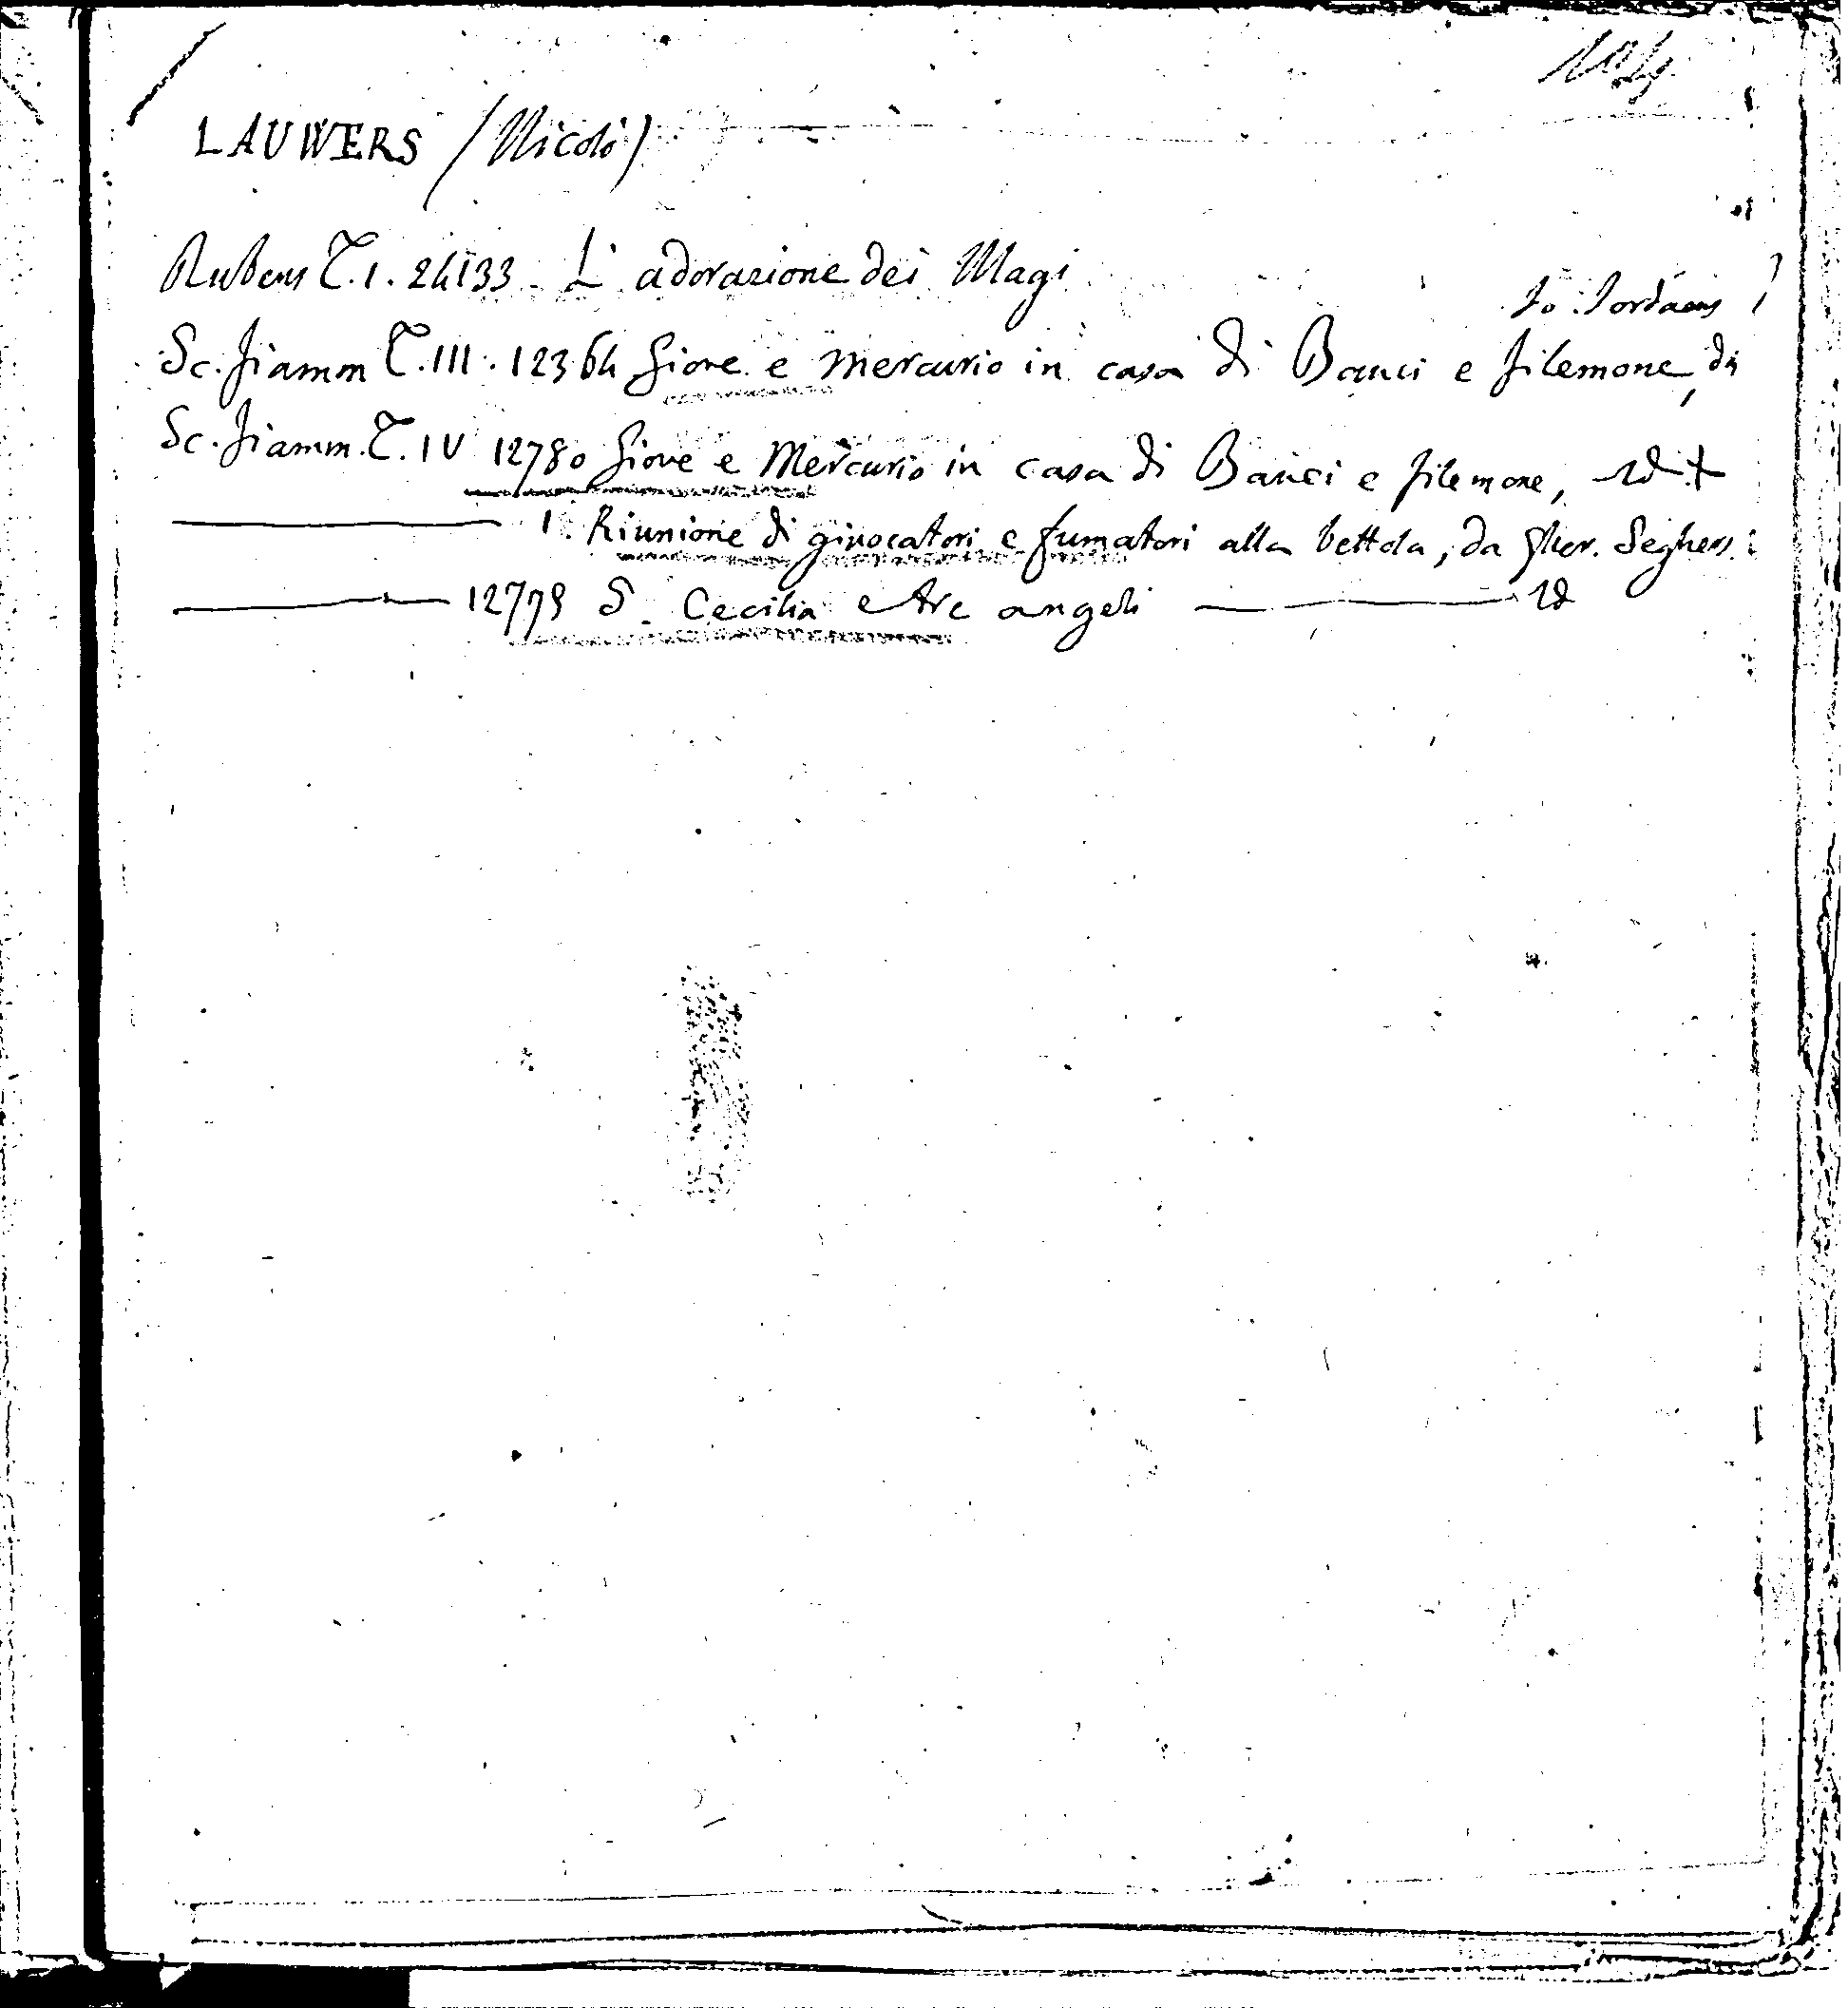 LAUWERS (Nicolò)
Rubens T.I. 24133 L'adorazione dei Magi
Jo Jordaens
Sc. Fiamm T.III. 12364 Giove e Mercurio in casa di Bauci e Filemone, da
Sc. Fiamm. T.IV 12780 Giove e Mercurio in casa di Bauci e Filemone, id +
1. Riunione di giuocatori e fumatori alla bettola, da Gher. Seghers.
12779 S. Cecilia e tre angeli id